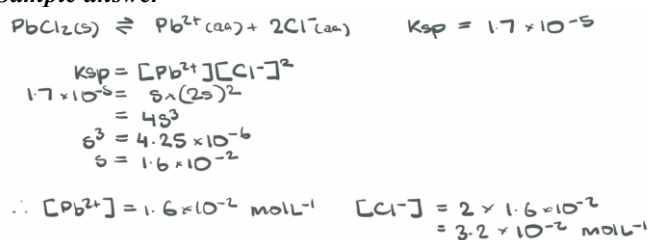 Sample answer
PbCl₂(s) ⇌ Pb²⁺(aq) + 2Cl⁻(aq)    Ksp = 1.7 × 10⁻⁵
Ksp = [Pb²⁺][Cl⁻]²
1.7 × 10⁻⁵ = s × (2s)²
= 4s³
s³ = 4.25 × 10⁻⁶
s = 1.6 × 10⁻²
∴ [Pb²⁺] = 1.6 × 10⁻² mol L⁻¹    [Cl⁻] = 2 × 1.6 × 10⁻²
= 3.2 × 10⁻² mol L⁻¹